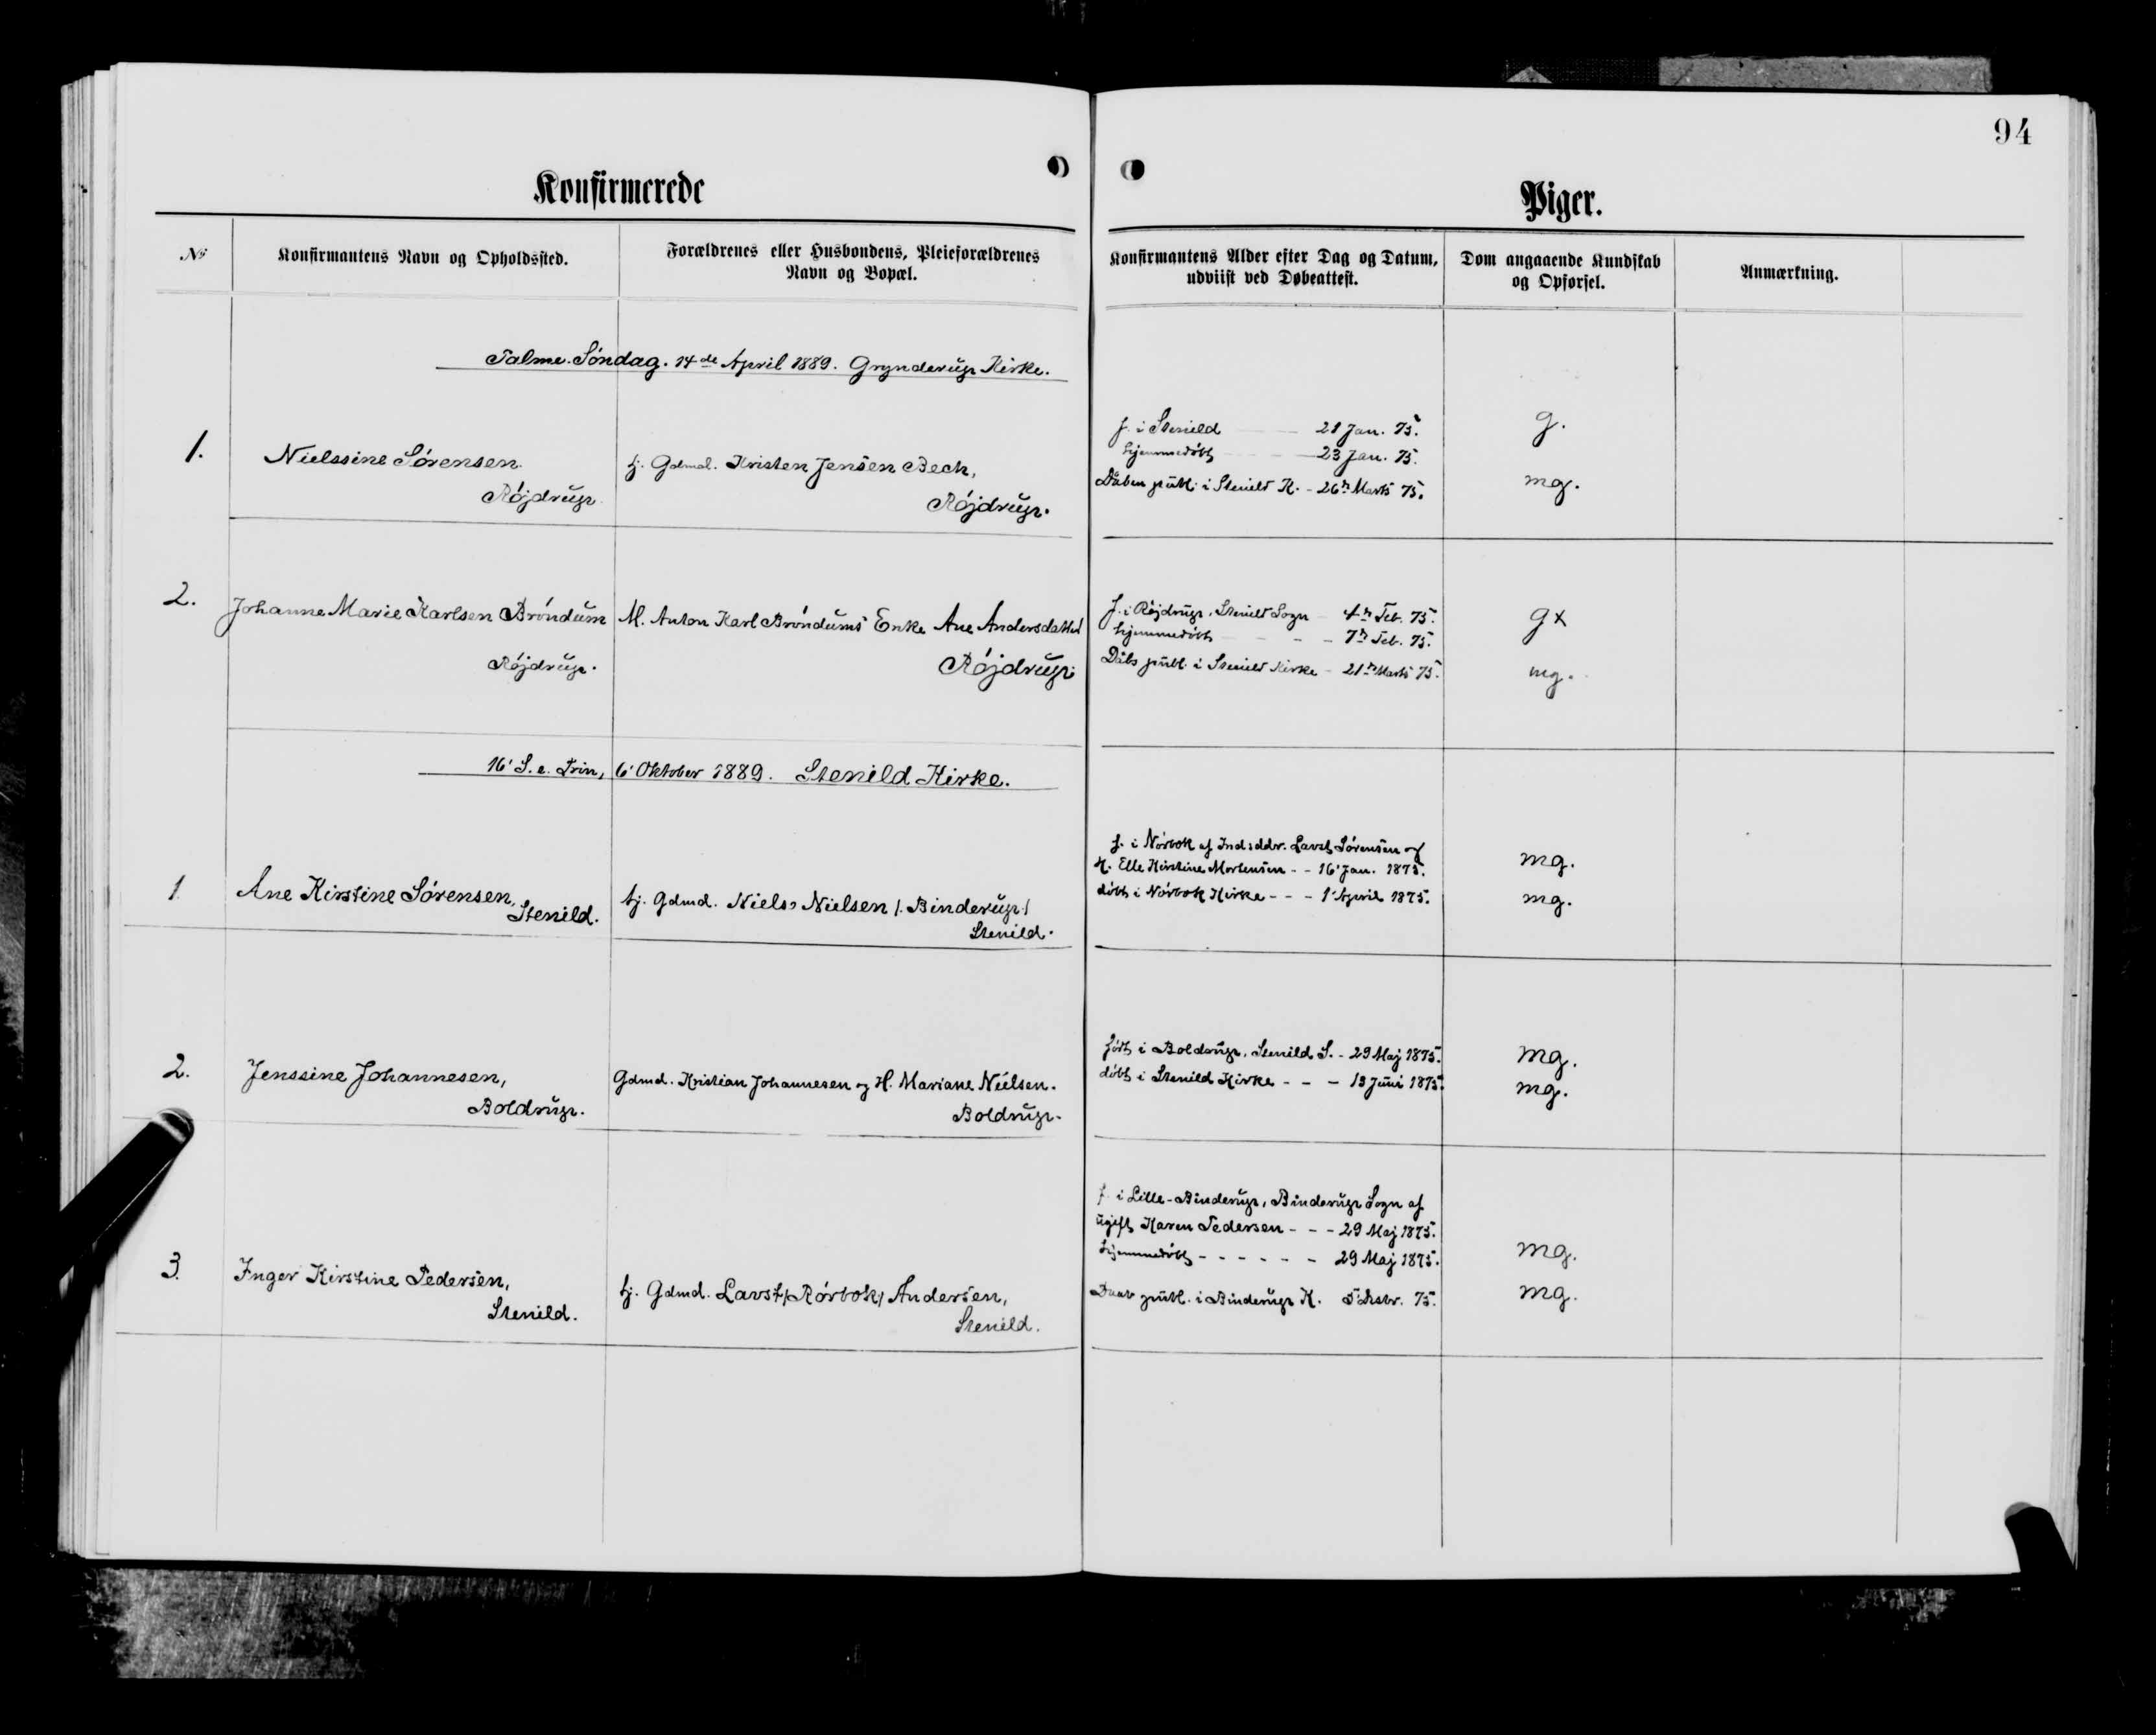 94
Konfirmerede
Piger.
No
Konfirmantens Navn og Opholdssted.
Forældrenes eller Husbondens, Pleieforældrenes
Navn og Bopæl.
Konfirmantens Alder efter Dag og Datum,
udviist ved Døbeattest.
Dom angaaende Kundskab
og Opførsel.
Anmærkning.
Palme-Søndag. 14de April 1889. Grynderup Kirke.
1.
Nielssine Sørensen.
Røjdrup.
tj. Gdmd. Kristen Jensen Bech,
Røjdrup.
f. i Stenild 21 Jan. 75.
hjemmedøbt 23 Jan. 75.
Dåben publ. i Stenild K. - 26n Marts 75.
g.
mg.
2.
Johanne Marie Karlsen Brøndum
Røjdrup.
M. Anton Karl Brøndums Enke Ane Andersdatter
Røjdrup.
f. i Røjdrup, Stenild Sogn - 4n Feb. 75.
hjemmedøbt - - - 7n Feb. 75.
Dåb publ. i Stenild Kirke - 21n Marts 75.
gx
mg.
16' S. e. Trin, 6' Oktober 1889. Stenild Kirke.
1.
Ane Kirstine Sørensen,
Stenild.
tj. Gdmd. Niels Nielsen /. Binderup /
Stenild.
f. i Nørbok af Indsddr. Lavst Sørensen og
H. Elle Kirstine Mortensen - - 16' Jan. 1875.
døbt i Nørbok Kirke - - - 1' April 1875.
mg.
mg.
2.
Jenssine Johannesen,
Boldrup.
Gdmd. Kristian Johannesen og H. Mariane Nielsen.
Boldrup.
født i Boldrup, Stenild S. - 29 Maj 1875.
døbt i Stenild Kirke - - - 13 Juni 1875.
mg.
mg.
3.
Inger Kirstine Pedersen,
Stenild.
tj. Gdmd. Lavst /Rørbok/ Andersen,
Stenild.
f. i Lille-Binderup, Binderup Sogn af
ugift Karen Pedersen - - - 29 Maj 1875.
hjemmedøbt - - - - - - 29 Maj 1875.
Daab publ. i Binderup K. 75.
mg.
mg.